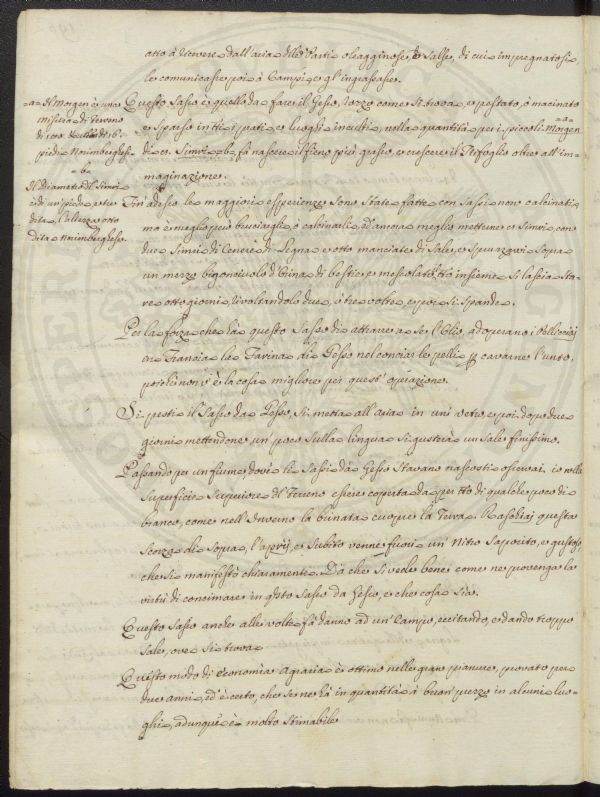 atto à ricevere dall'aria dille Parti oleagginose, e Salse, di cui impregnatosi,
le comunicasse poi à Campi e gl'ingrassasse.
Questo Sasso è quello da farsi il Gesso, rozzo come si trova, e pestato, ò macinato
e Sparso in tti i prati, e luoghi inculti, nella quantità per i piccoli Morgen
di 1. Simri b, fà nascere il fieno più grasso, e crescere il Trifoglio oltre all'im-
maginazione.
-a- Il Morgen è una
misura di terreno
piedi Norimberghesi.
-b-
Il Diametro dl Simri
è di un piede, e tre
dita, l'altezza otto
dita Norimberghese.
Fin'adesso le maggiori esperienze sono state fatte con Sassi non calcinati
mà è meglio però bruciargli, ò calcinarli, ed'ancora meglio metterne 2 Simri con
due Simri di Cenere di Legna e otto manciate di Sale, e spruzzarvi Sopra
un mezzo bigonciuolo d'Orina di bestie, e mescolato trà insieme si lascia sta-
re otto giorni, rivoltandolo due, ò tre volte, e poi si Spande.
Per la forza che hà questo Sasso di attrarre a se l'Olio, adoperano i Pellicciaj
in Francia la Farina di Gesso nel conciar le pelli p cavarne l'unto
poiche non v'è la cosa migliore per quest'operazione.
Si pesti il Sasso da Gesso, si metta all'Aria in un vetro, e poi dopo due
giorni mettendone un poco sulla lingua si gusterà un Sale finissimo.
Passando per un fiume dove li Sassi da Gesso stavano nascosti osservai io nella
Superficie Superiore dl Terreno essere coperta da per tto di qualche poco di
bianco, come nell'Inverno la brinata cuopre la Terra. Raschiai questa
Scorza di Sopra, l'aprij, e Subito venne fuori un Nitro Saporito, e gustoso,
che si manifestò chiaramente. Dà che si vede bene come ne provenga la
virtù di concimare in qsto Sasso da Gesso, e che cosa sia.
Questo Sasso anche alle volte fà danno ad un'Campo, eccitando, e dando troppo
Sale, ove si trova.
Questo modo di economia Agraria è ottimo nelle gran pianure, provato per
due anni, ed'è certo, che se ne hà in quantità à buon prezzo in alcuni luo-
ghi, adunque è molto Stimabile.